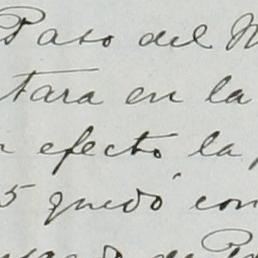 Paso del
tara en la
efecto la
5 quedó con
de